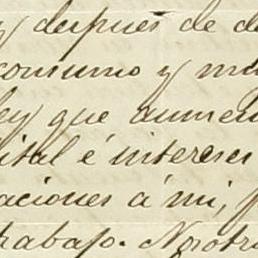 y después de d
consumo y m
ley que aumen
ital é intereses
aciones á mi,
trabajo. N